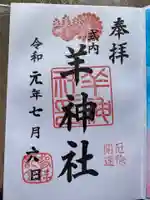 奉拝
式内
羊神社
令和元年七月六日